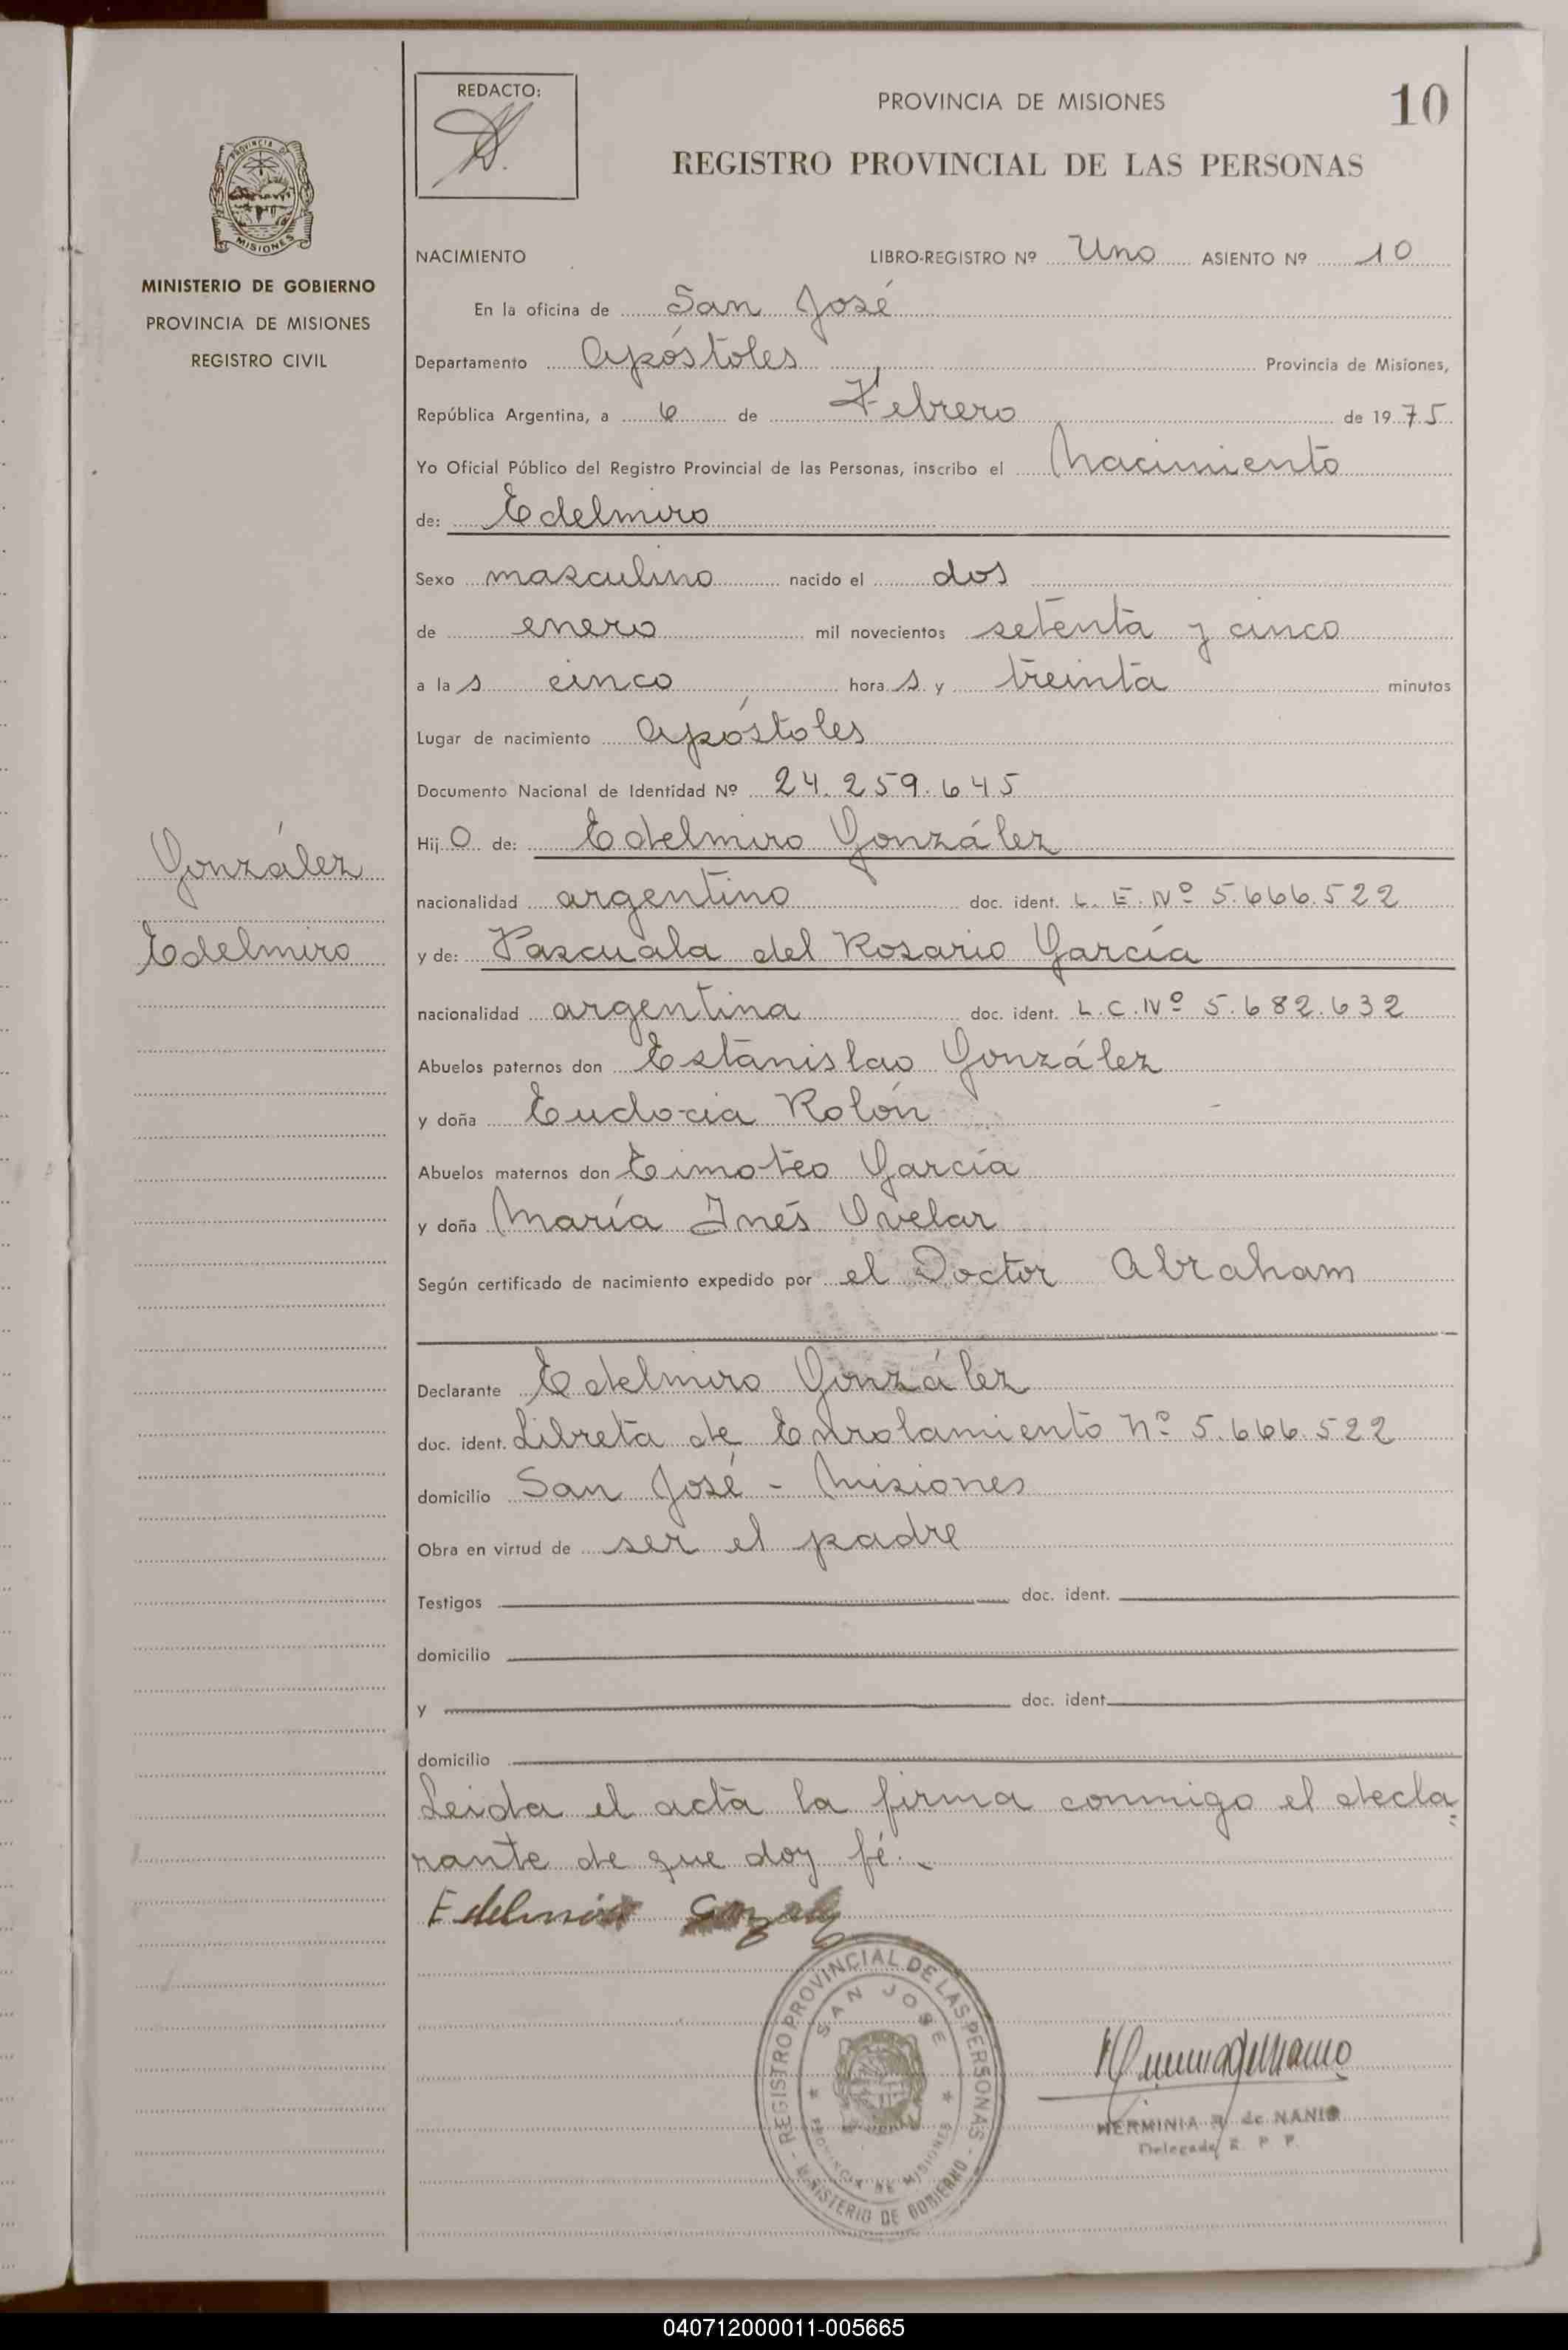 10
REDACTO:
PROVINCIA DE MISIONES
REGISTRO PROVINCIAL DE LAS PERSONAS
PROVINCIA DE
MISIONES
MINISTERIO DE GOBIERNO
PROVINCIA DE MISIONES
REGISTRO CIVIL
González
Edelmiro
NACIMIENTO LIBRO-REGISTRO Nº Uno ASIENTO Nº 10
En la oficina de San José
Departamento Apóstoles Provincia de Misiones,
República Argentina, a 6 de Febrero de 1975
Yo Oficial Público del Registro Provincial de las Personas, inscribo el Nacimiento
de: Edelmiro
Sexo masculino nacido el dos
de enero mil novecientos setenta y cinco
a las cinco horas y treinta minutos
Lugar de nacimiento Apóstoles
Documento Nacional de Identidad Nº 24.259.645
Hijo de: Edelmiro González
nacionalidad argentino doc. ident. L.E.Nº 5.666.522
y de: Pascuala del Rosario García
nacionalidad argentina doc. ident. L.C.Nº 5.682.632
Abuelos paternos don Estanislao González
y doña Eudocia Rolón
Abuelos maternos don Timoteo García
y doña María Inés Ovelar
Según certificado de nacimiento expedido por el Doctor Abraham
Declarante Edelmiro González
doc. ident. Libreta de Enrolamiento Nº 5.666.522
domicilio San José - Misiones
Obra en virtud de ser el padre
Testigos doc. ident.
domicilio
y doc. ident.
domicilio
Leida el acta la firma conmigo el decla=
rante de que doy fé.
Edelmiro
REGISTRO PROVINCIAL DE LAS PERSONAS
SAN JOSE
PROVINCIA DE MISIONES
- MINISTERIO DE GOBIERNO -
HERMINIA R. de NANIO
Delegada R. P. P.
040712000011-005665